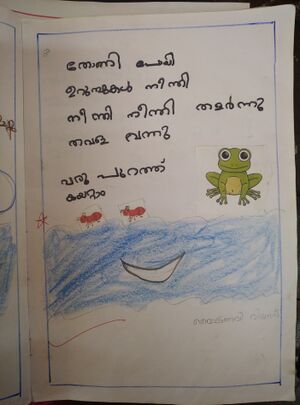 തോണി പോയി
ഉറുമ്പുകൾ നീന്തി
നീന്തി നീന്തി തളർന്നു
തവള വന്നു
വരൂ പുറത്ത്
കയറാം
വൈഷ്ണവി